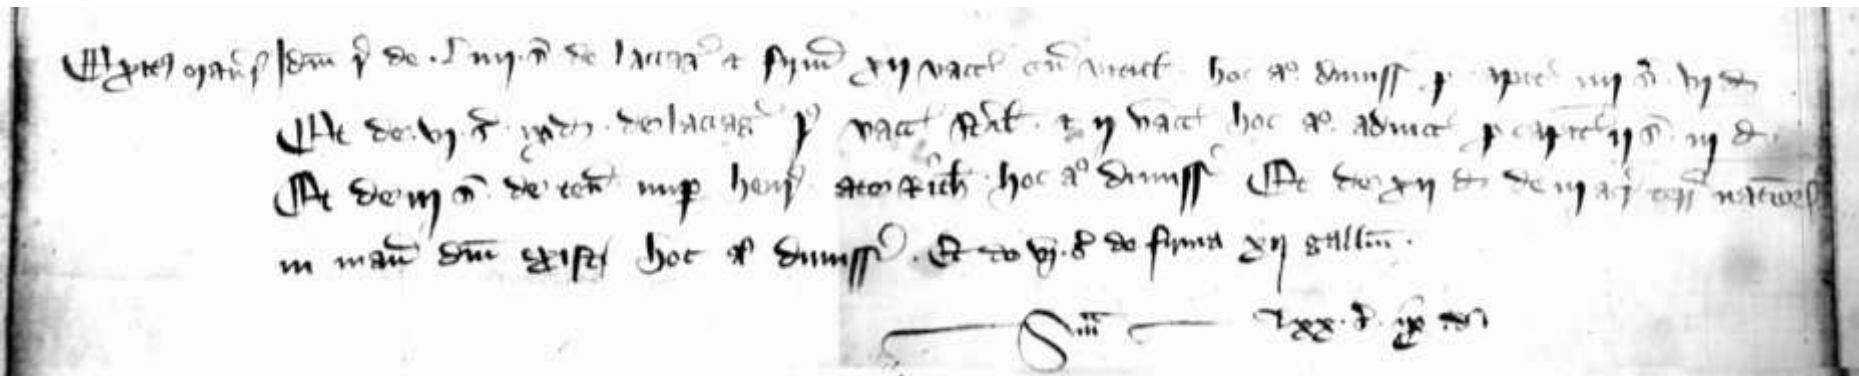 Exit' man'ij Idem r' de . liiij . s' de lactag' & firm' xij vacc' cu' vitul' hoc a° dimiss' . p' . capit' iiij s' vj d'
Et de . vj . s' . ix d' . de lactag' p' vacc' steril' . & ij vacc' hoc a° adiunct' p' capite ij s' . iij d' .
Et de iij s' . de ten' nup' henr' atte hoc a° dimiss' Et de xij d' de iij acr' terr' natiue
in man' dni' exist' hoc a° dimiss' . Et de vj . s' de firma xij gallin' .
Sm' lxx . s' . ix d'